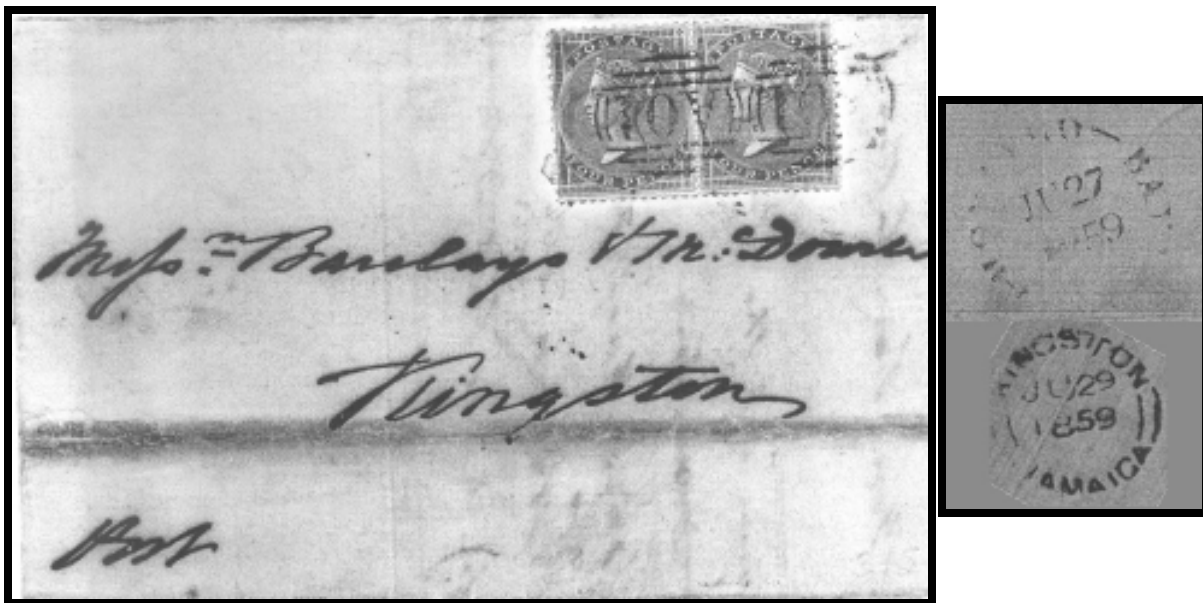 POSTAGE POSTAGE
FOUR PENCE FOUR PENCE
Messrs Barclays & Mc: Dowell
Kingston
Post
BAY
JU 27
1859
KINGSTON
JU 29
1859
JAMAICA